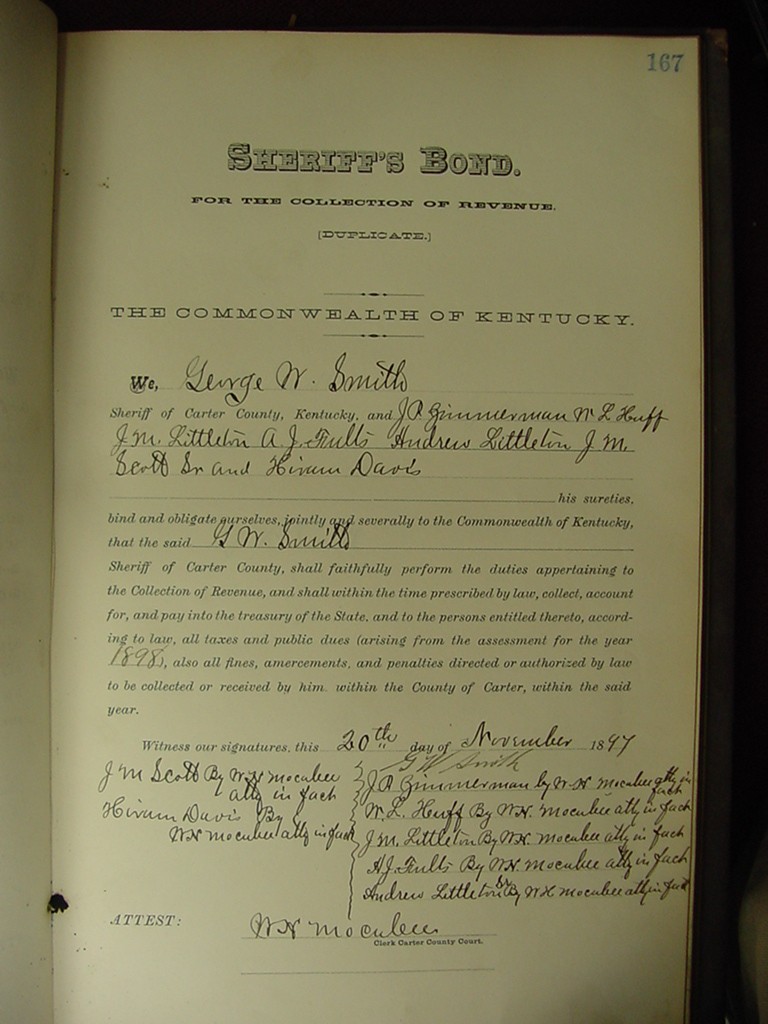 167
SHERIFF'S BOND.
FOR THE COLLECTION OF REVENUE.
[DUPLICATE.]
THE COMMONWEALTH OF KENTUCKY.
We, George W. Smith
Sheriff of Carter County, Kentucky, and J. P. Zimmerman W L Huff
J. M. Littleton A. J. Fults Andrew Littleton J. M.
Scott Sr and Hiram Davis
his sureties,
bind and obligate ourselves, jointly and severally to the Commonwealth of Kentucky,
that the said G W. Smith
Sheriff of Carter County, shall faithfully perform the duties appertaining to
the Collection of Revenue, and shall within the time prescribed by law, collect, account
for, and pay into the treasury of the State, and to the persons entitled thereto, accord-
ing to law, all taxes and public dues (arising from the assessment for the year
1898), also all fines, amercements, and penalties directed or authorized by law
to be collected or received by him within the County of Carter, within the said
year.
Witness our signatures, this 20th day of November 1897
G W Smith
J M Scott By W. H mocabee
atty in fact
Hiram Davis By
W H mocabee atty in fact
J. P. Zimmerman by W. H mocabee atty in fact
W. L. Huff By W H. mocabee atty in fact
J. M. Littleton By W H. mocabee atty in fact
A J. Fults By W H. mocabee atty in fact
Andrew Littleton Sr By W H mocabee atty in fact
ATTEST: W H mocabee
Clerk Carter County Court.